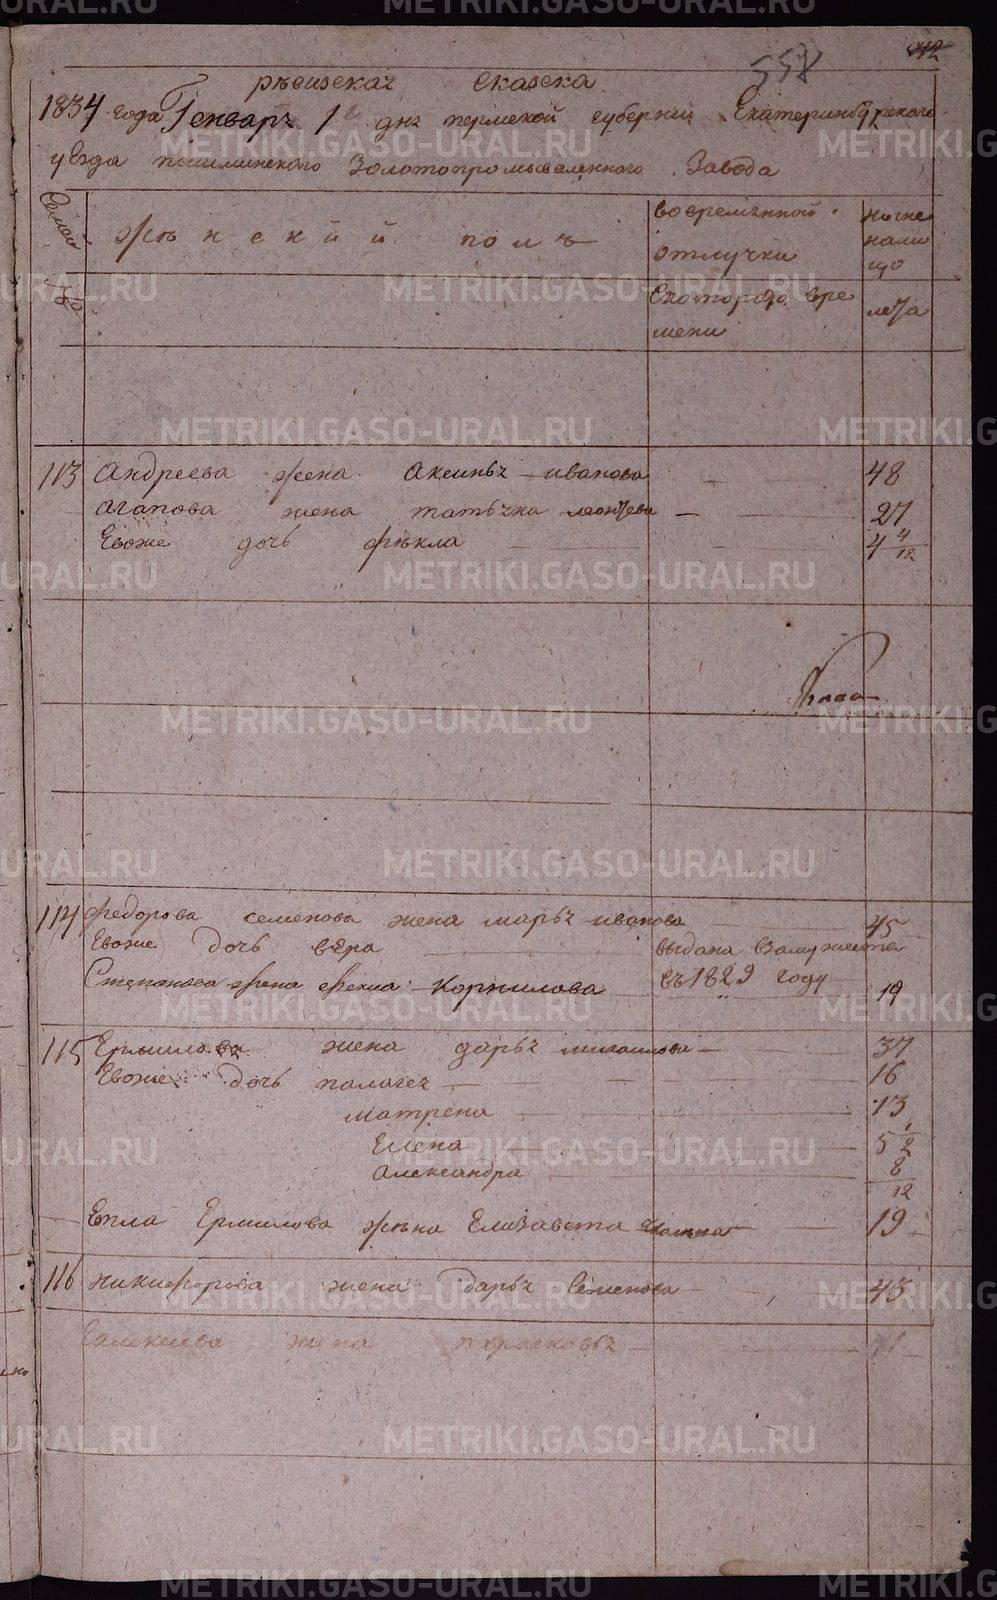 558 442
ревизская сказка
1834 года Генваря 1 дня пермской губернии Екатеринбургского
уезда пышминского Золотопромываленного Завода
Семьи №
женский полъ
во временной отлучки
ныне нали що
Скоторого вре мени
лета
113 Андреева жена Аксинья иванова 48
Агапова жена татьяна леонтева — 27
Евоже дочь фекла 4 4/12
114 Федорова семенова жена марья иванова 45
Евоже дочь вера выдана Взамужества
въ 1829 году
Степанова жена фекла Корнилова 19
115 Ермилова жена дарья михаилова — 37
Евоже дочь палагея — 16
матрена 13
Елена 5 1/2
Александра 8/12
Ермилова жена Елизавета 19
116 никифорова жена дарья Семенова 43
жена парасковья
METRIKI.GASO-URAL.RU